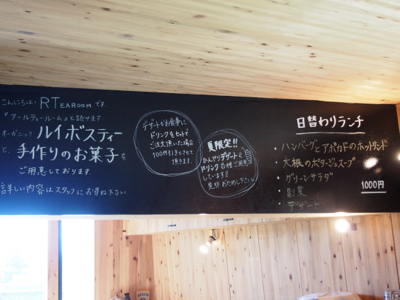 こんにちは! RTEAROOMです
『アールティールーム』と読みます
オーガニック ルイボスティー
と、手作りのお菓子を
ご用意しております
詳しい内容はスタッフにお尋ね下さい
デザートがお食事に
ドリンクをセットで
ご注文頂いた場合
100円引きとさせて
頂きます。
夏限定!!
ひんやりデザート
ドリンク
しています!!
日替わりランチ
・ハンバーグとアボカドのホットサンド
・大根のポタージュスープ
・グリーンサラダ
・副菜
・デザート
1000円